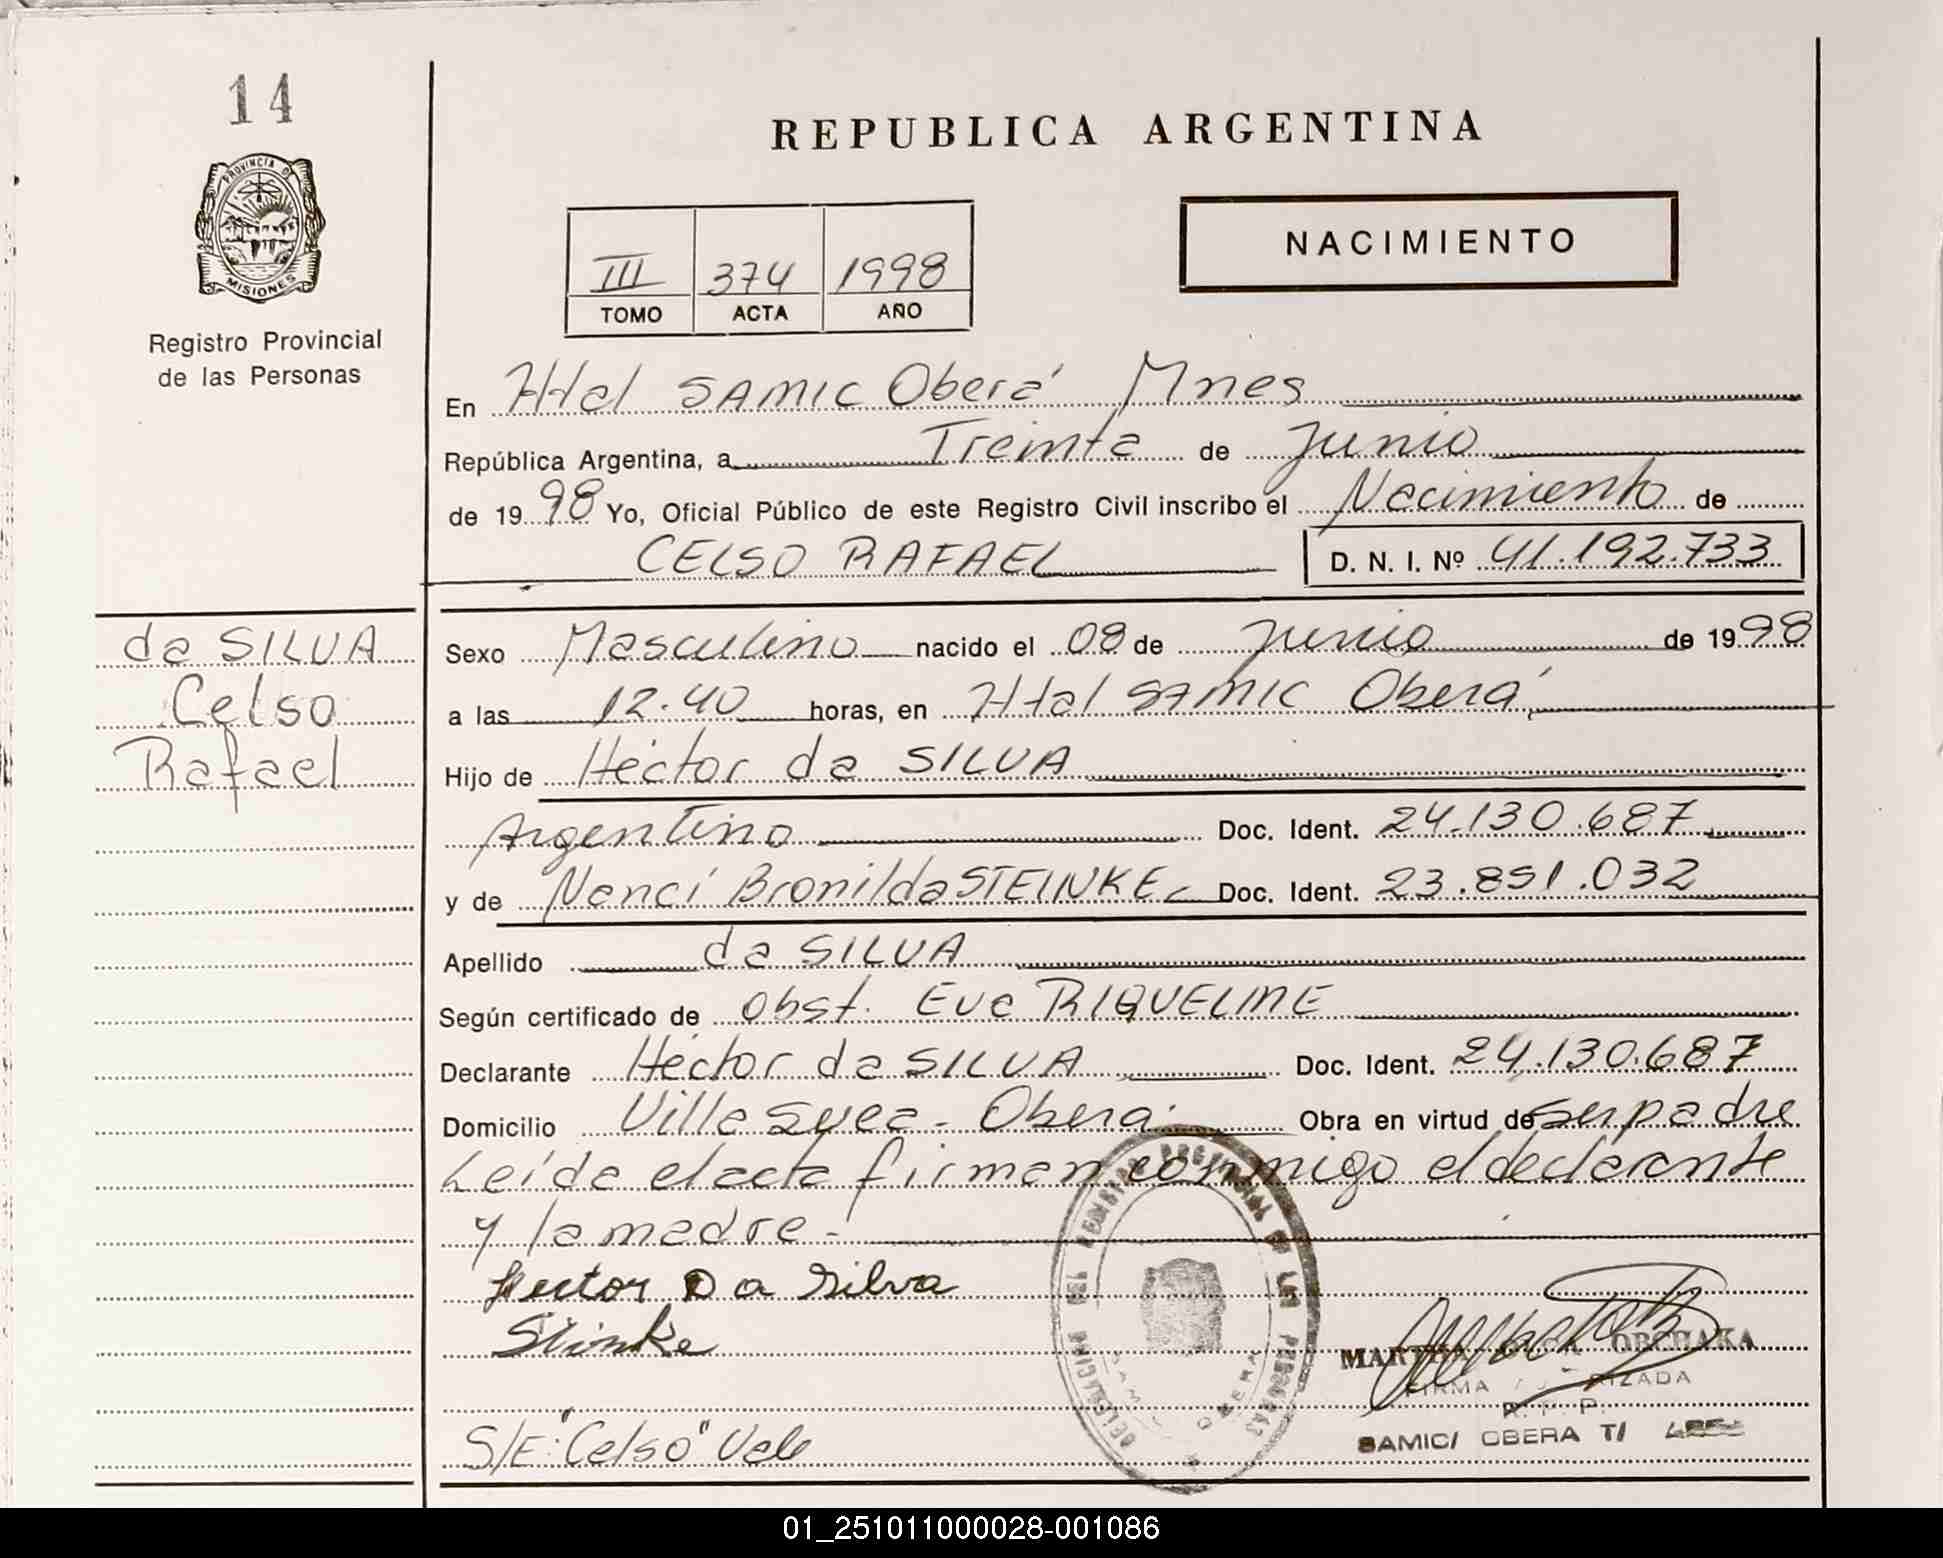 14
PROVINCIA DE
MISIONES
Registro Provincial
de las Personas
REPUBLICA ARGENTINA
NACIMIENTO
III 374 1998
TOMO ACTA AÑO
En Htal SAMIC Oberá Mnes
República Argentina, a Treinta de Junio
de 1998 Yo, Oficial Público de este Registro Civil inscribo el Nacimiento de
CELSO RAFAEL D. N. I. Nº 41.192.733
da SILVA
Celso
Rafael
Sexo Masculino nacido el 08 de Junio de 1998
a las 12.40 horas, en Htal SAMIC Oberá
Hijo de Héctor da SILVA
Argentino Doc. Ident. 24.130.687
y de Nanci Bronilda STEINKE Doc. Ident. 23.851.032
Apellido da SILVA
Según certificado de Obst. Eva RIQUELME
Declarante Héctor da SILVA Doc. Ident. 24.130.687
Domicilio Villa Svea - Oberá Obra en virtud de ser padre
Leída el acta firman conmigo el declarante
y la madre.-
Hector Da Silva
Stinke
MARTHA OLGA ORCHAKA
FIRMA AUTORIZADA
R. P. P.
SAMIC/ OBERA T/
S/E: "Celso" Vale
01_251011000028-001086